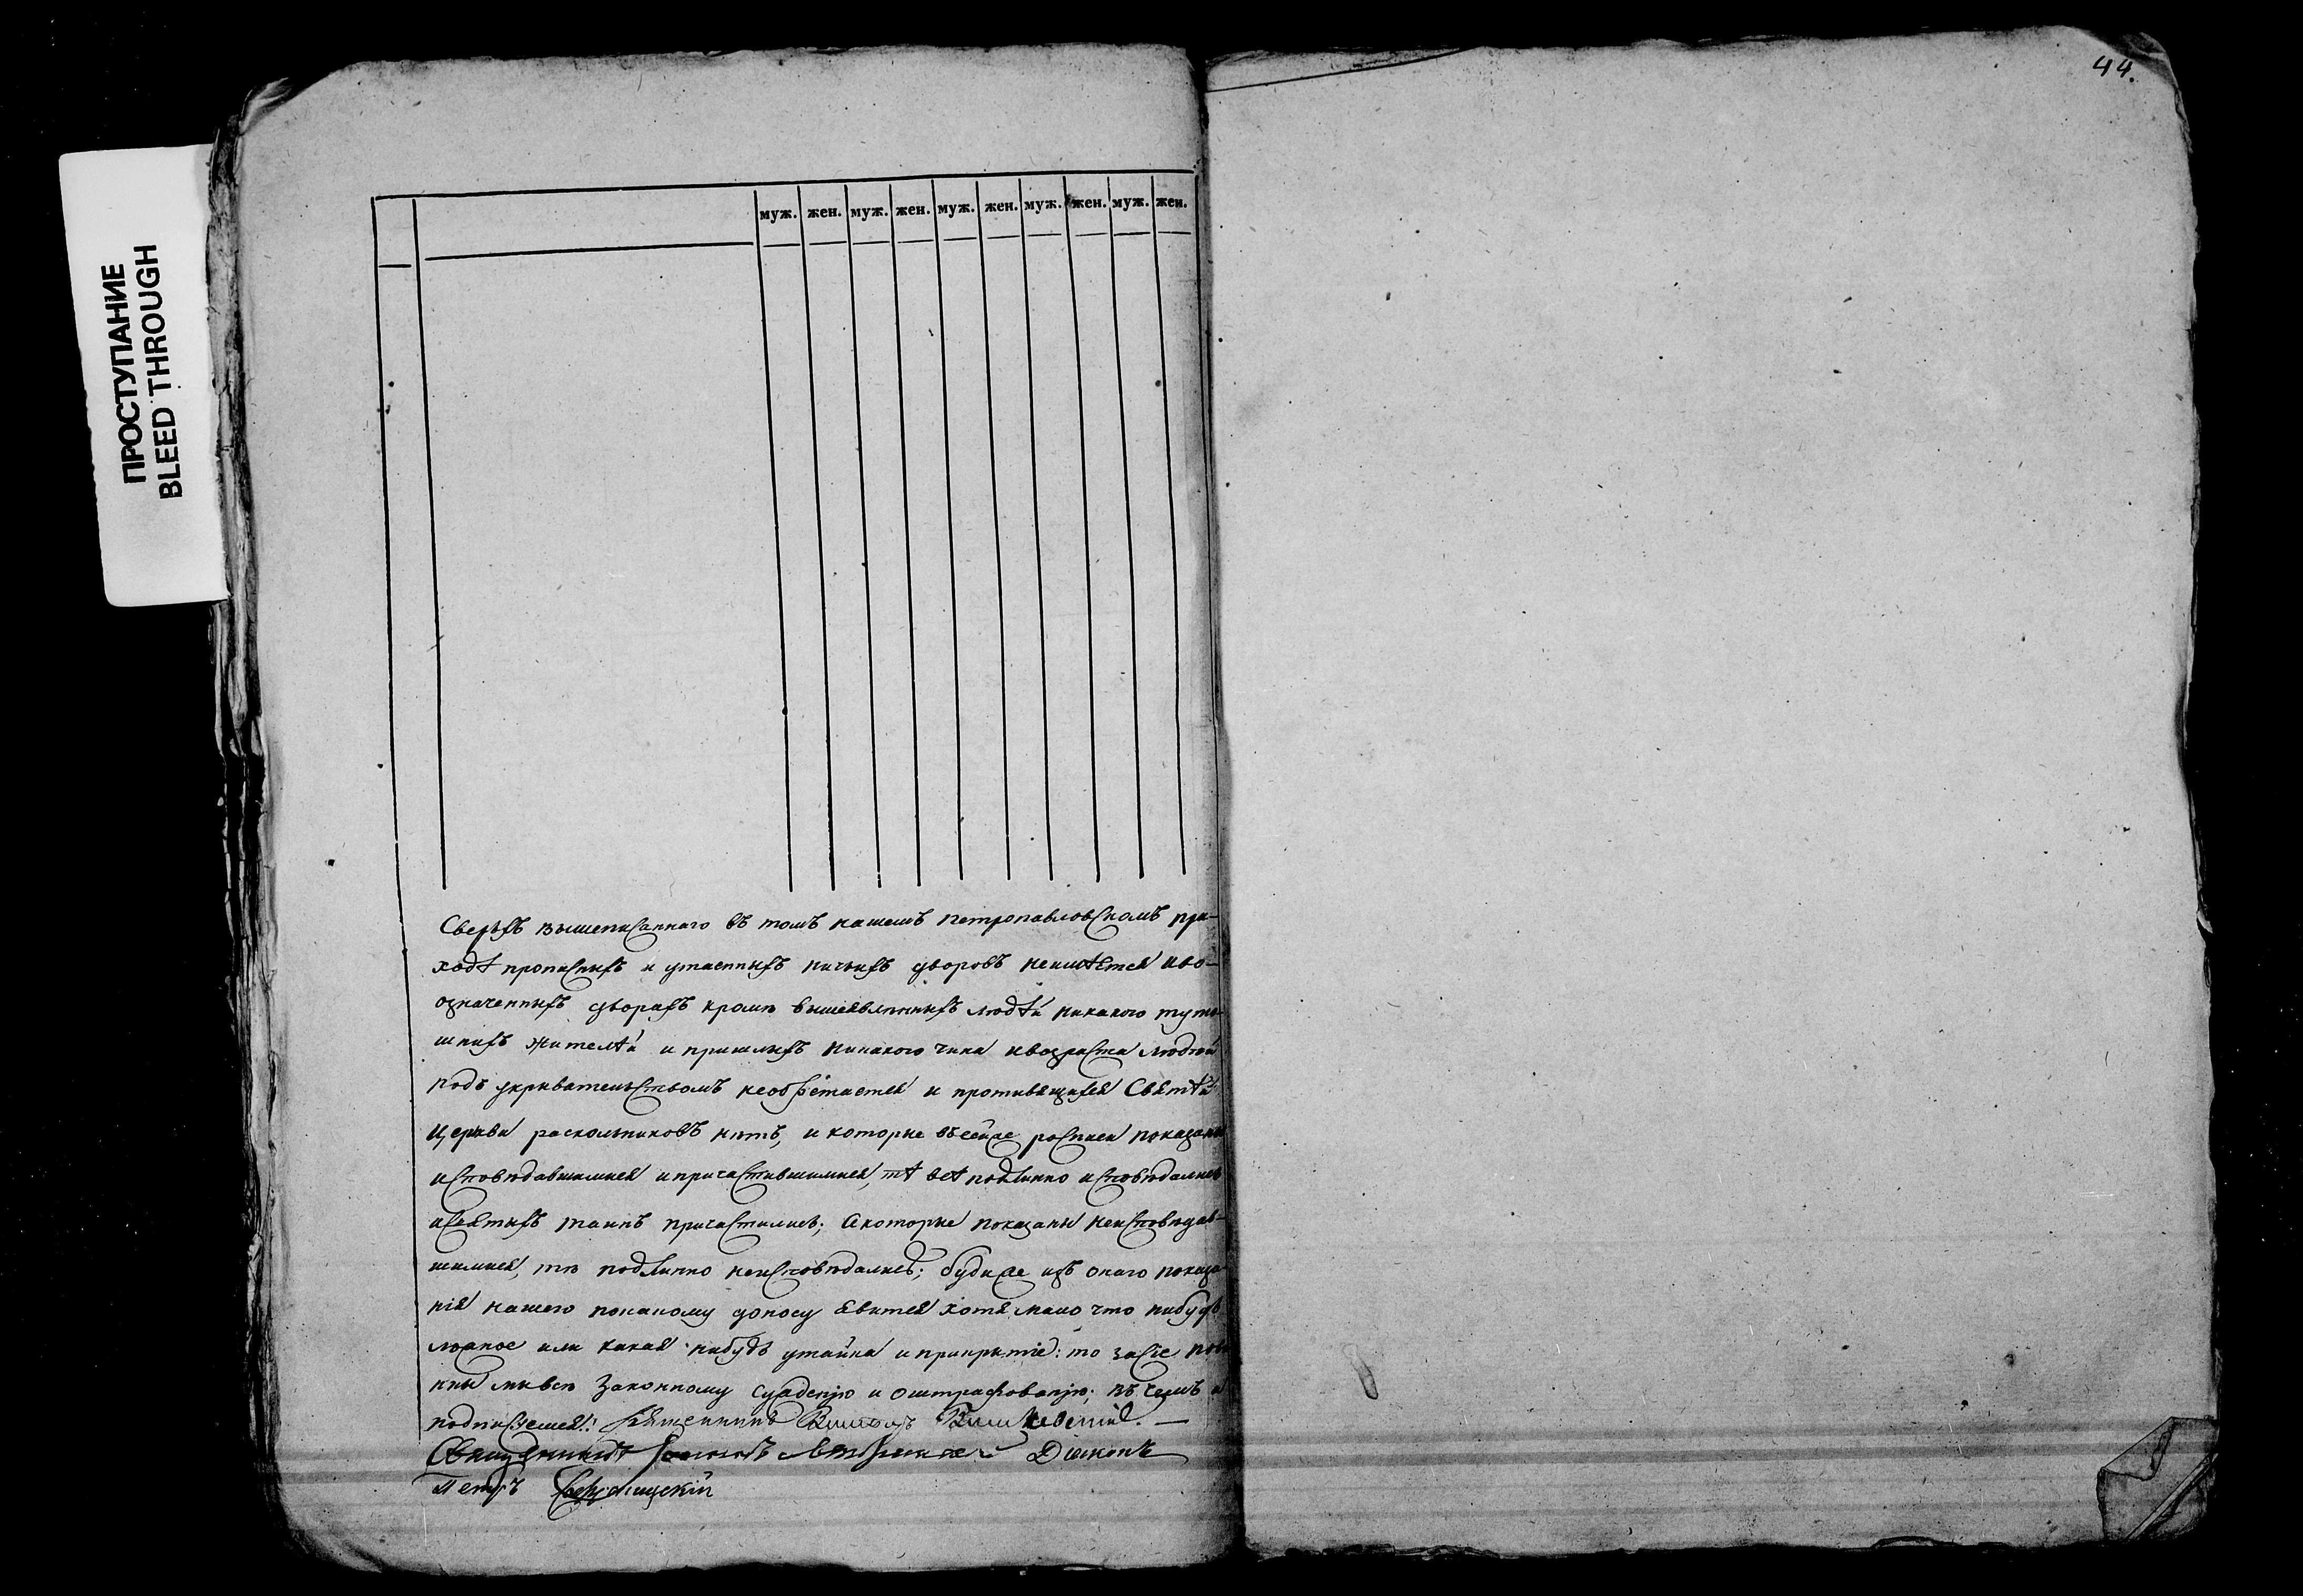 44.
ПРОСТУПАНИЕ
BLEED THROUGH
муж. жен. муж. жен. муж. жен. муж. жен. муж. жен.
Сверьхъ вышеписаннаго въ томъ нашемъ Петропавловскомъ при-
ходѣ прописныхъ и утаенныхъ ничьихъ дворовъ неимѣется иво-
означенныхъ дворахъ кромѣ вышеявленныхъ людѣй никакого туто-
шнихъ жителѣй и пришлыхъ никакого чина ивозраста людѣй
подъ укрывательствомъ необрѣтается и противящихся Святѣй
Церкви раскольниковъ нѣтъ, и которые въсейже росписи показаны
исповѣдавшимися ипричастившимися, тѣ всѣ подлинно исповѣдались
исвятыхъ таинъ причастились; Акоторые показаны неисповѣдав-
шимися, тѣ подлинно неисповѣдались; будиже изъ онаго показа-
нія нашего покакому доносу явится хотя мало что нибудь
ложное или какая нибудь утайка и прикрытіе: то засіе пови
нны мывсѣ Законному сужденію и оштрафованію; въ чемъ и
подписуемся: Священникъ
Діаконъ
Петръ